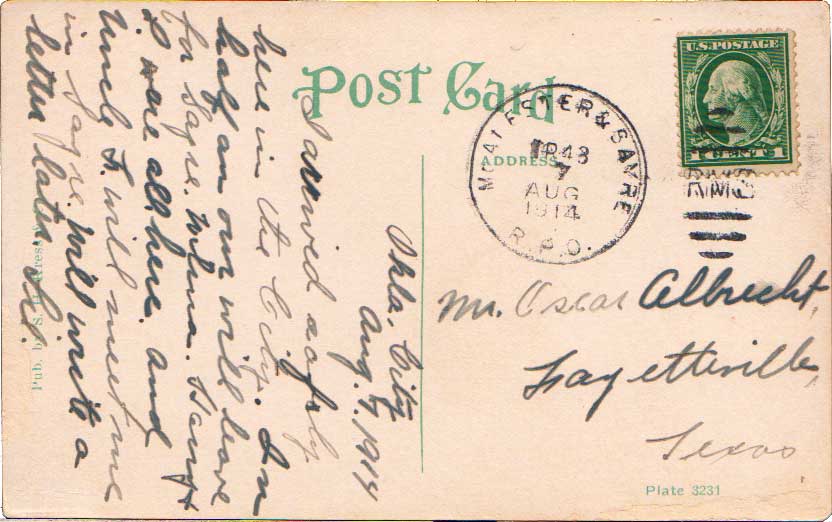 POST CARD
ADDRESS
U.S. POSTAGE
1 CENT 1
McALESTER & SAYRE
TR 43
7
AUG
1914
R.P.O.
RMS
Okla. City
Aug. 7, 1914
I arrived safely
here in the City. In
half an our will leave
for Sayre. Wilma.
I. were all here. and
Uncle F. will meet me
in Sayre. Will write a
letter later.
Mr. Oscar Albrecht,
Fayetteville,
Texas
Pub. by S. H. Kress &
Plate 3231